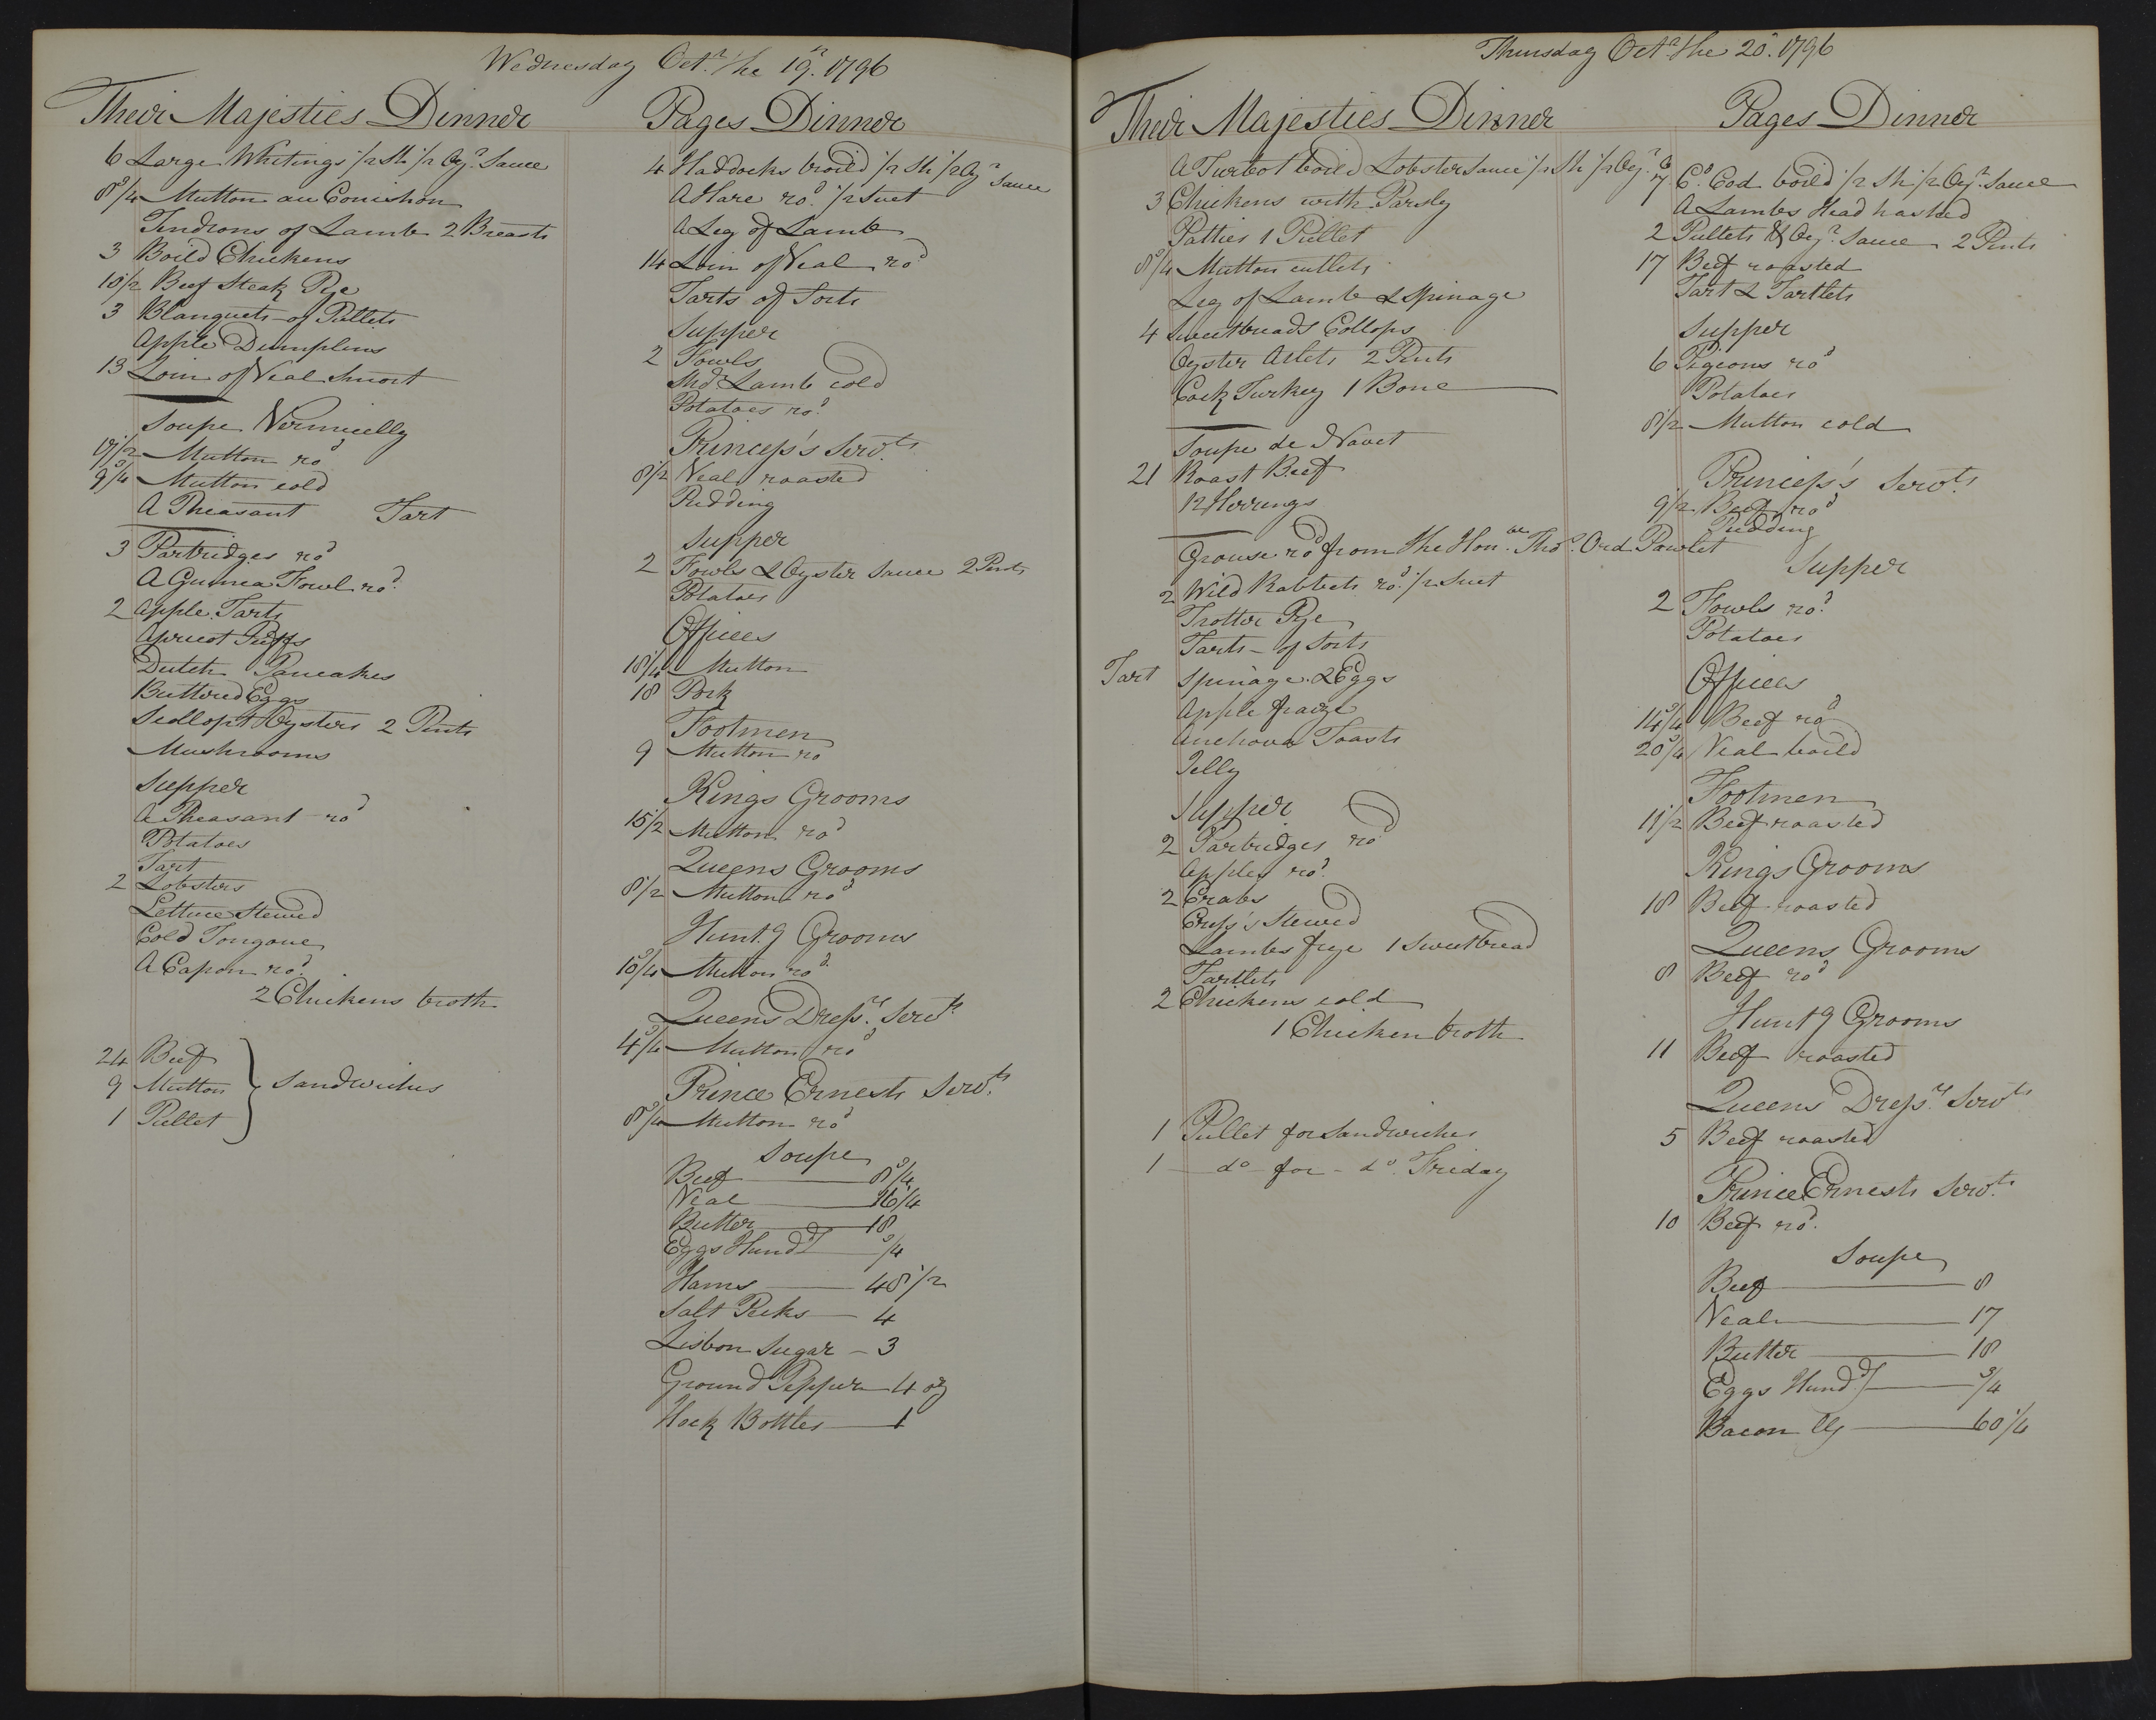 Wednesday Octr. the 19th. 1796
Their Majesties Dinner
6 Large Whitings 1/2 Sh 1/2 Oyr. Sauce
8 3/4 Mutton au Conishon
Tindrons of Lamb 2 Breasts
3 Boild Chickens
10 1/2 Beef Steak Pye
3 Blanquets of Pullets
Apple Dumplins
13 Loin of Veal Smort
Soupe Vermicelly
19 1/2 Mutton rod
9 3/4 Mutton cold
A Pheasant Tart
3 Partridges rod
A Guinea Fowl rod.
2 Apple Tarts
Apricot Puffs
Dutch Pancakes
Buttered Eggs
Scollopt Oysters 2 Pints
Mushrooms
Supper
A Pheasant rod
Potatoes
Tart
2 Lobsters
Lettuce Stewed
Cold Tongue
A Capon rod.
2 Chickens broth
24 Beef
9 Mutton } Sandwiches
1 Pullet
Pages Dinner
4 Haddocks broild 1/2 Sh 1/2 Oyr Sauce
A Hare rod. 1/2 Suet
A Leg of Lamb
14 Loin of Veal rod
Tarts of Sorts
Supper
2 Fowls
Lamb cold
Potatoes rod.
Princess's Servts.
8 1/2 Veal roasted
Pudding
Supper
2 Fowls & Oyster Sauce 2 Pints
Potatoes
Offices
18 1/4 Mutton
18 Pork
Footmen
9 Mutton ro
Kings Grooms
15 1/2 Mutton rod
Queens Grooms
8 1/2 Mutton rod
Hunt.g Grooms
10 3/4 Mutton rod.
Queens Dress.rs Servts
4 3/4 Mutton rod
Prince Ernests Servts.
8 3/4 Mutton rod
Soupe
Beef 8 3/4
Veal 16 1/4
Butter 18
Eggs Hundd 3/4
Hams 48 1/2
Salt Peks 4
Lisbon Sugar 3
Ground Pepper 4 oz
Hock Bottles 1
Thursday Octr the 20th. 1796
Their Majesties Dinner
A Turbot boild Lobster Sauce 1/2 Sh 1/2 Oyr.
3 Chickens with Parsley
Patties 1 Pullet
8 3/4 Mutton cutlets
Leg of Lamb & Spinage
4 Sweetbreads Collops
Oyster Atlets 2 Pints
Cock Turkey 1 Bone
Soupe de Navet
21 Roast Beef
12 Herrings
Grouse rod from the Honble. Thos. Ord Powlet
2 Wild Rabbets rod. 1/2 Suet
Trotter Pye
Tarts of Sorts
Tart Spinage & Eggs
Apple fraize
Anchova Toasts
Jelly
Supper
2 Partridges rod
Apples rod.
2 Crabs
Cress's Stewed
Lambs frye 1 Sweetbread
Tartlets
2 Chickens cold
1 Chicken broth
1 Pullet for Sandwiches
1 do for do. Friday
Pages Dinner
Cod boild 1/2 Sh 1/2 Oyr. Sauce
A Lambs Head hashed
2 Pullets & Oyr. Sauce 2 Pints
17 Beef roasted
Tart & Tartlets
Supper
6 Pigeons rod
Potatoes
8 1/2 Mutton cold
Princess's Servts.
9 1/2 Beef rod
Pudding
Supper
2 Fowls rod.
Potatoes
Offices
14 3/4 Beef rod
20 3/4 Veal boild
Footmen
11 1/2 Beef roasted
Kings Grooms
18 Beef roasted
Queens Grooms
8 Beef rod
Huntg Grooms
11 Beef roasted
Queens Dress.rs Servts
5 Beef roasted
Prince Ernests Servts.
10 Beef rod.
Soupe
Beef 8
Veal 17
Butter 18
Eggs Hundd 3/4
Bacon lb 60 1/4